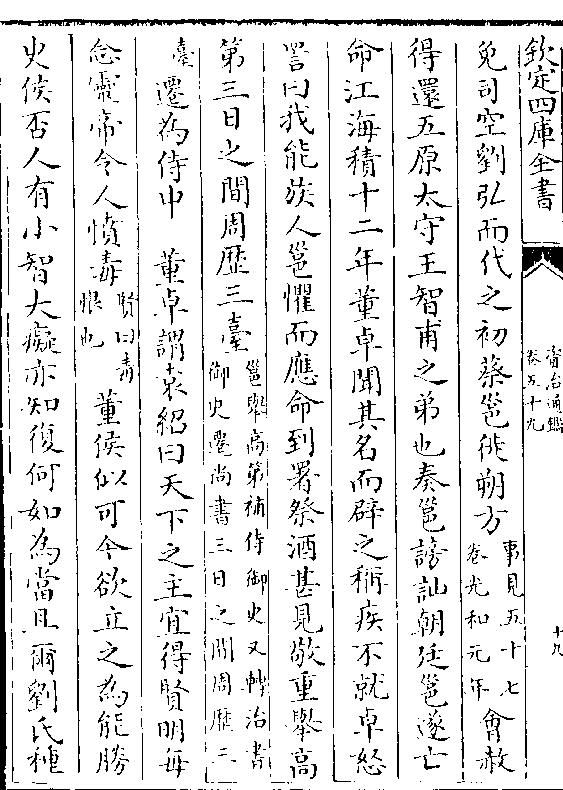 欽定四庫全書
資治通鑑
卷五十九
十九
免司空劉弘而代之初蔡邕徙朔方事見五十七卷光和元年會赦
得還五原太守王智甫之弟也奏邕謗訕朝廷邕遂亡
命江海積十二年董卓聞其名而辟之稱疾不就卓怒
詈曰我能族人邕懼而應命到署祭酒甚見敬重舉高
第三日之間周歷三臺邕舉高第補侍御史又轉治書御史遷尚書三日之間周歷三
臺遷為侍中 董卓謂袁紹曰天下之主宜得賢明每
念靈帝令人憤毒賢曰毒恨也董侯似可今欲立之為能勝
史侯否人有小智大癡亦知復何如為當且爾劉氏種